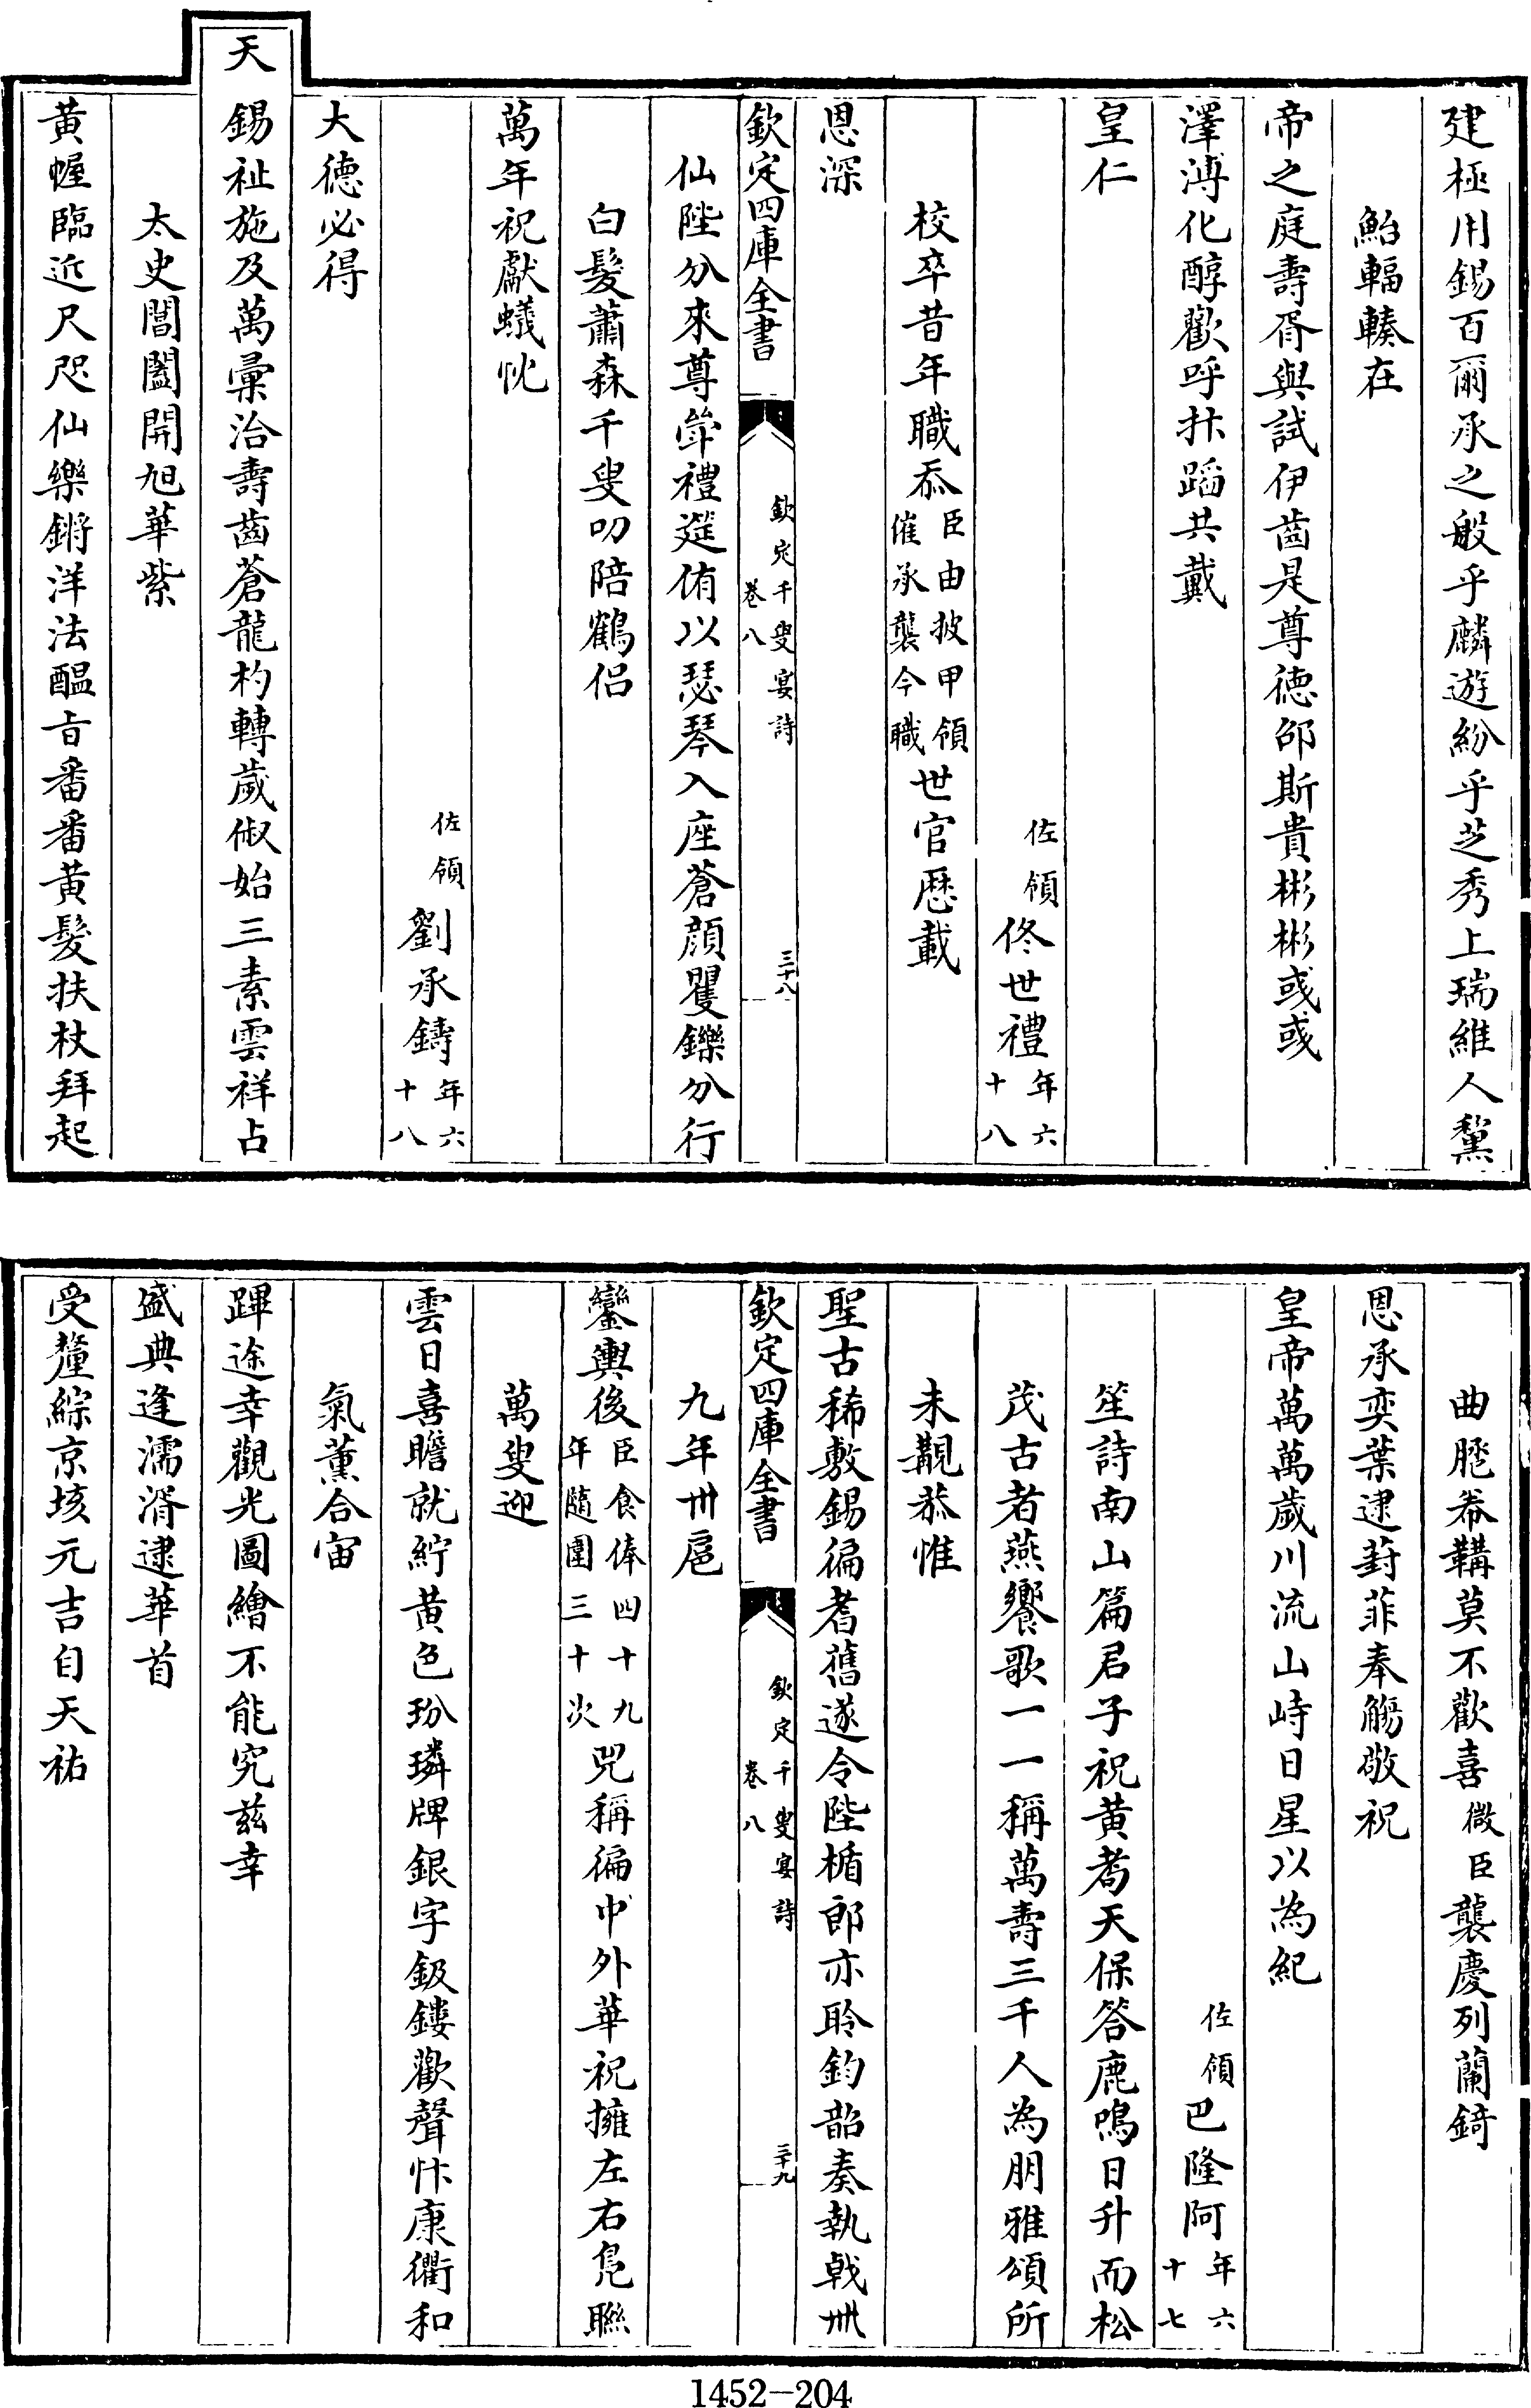 建極用錫百爾承之般乎麟遊紛乎芝秀上瑞維人黧
鮐輻輳在
帝之庭壽胥與試伊齒是尊德邵斯貴彬彬彧彧
澤溥化醇歡呼抃蹈共戴
皇仁
佐領佟世禮年六十八
校卒昔年職忝臣由披甲領催承襲今職世官歷載
恩深
欽定四庫全書
欽定千叟宴詩
卷八
三十八
仙陛分來尊斚禮筵侑以瑟琴入座蒼顔矍鑠分行
白髮蕭森千叟叨陪鶴侣
萬年祝獻蟻忱
佐領劉承鑄年六十八
大德必得
天錫祉施及萬彙洽壽齒蒼龍杓轉歲俶始三素雲祥占
太史閶闔開旭華紫
黄幄臨近尺咫仙樂鏘洋法醖㫖番番黄髮扶杖拜起
曲䠶帣鞲莫不歡喜微臣襲慶列蘭錡
恩承奕葉逮葑菲奉觴敬祝
皇帝萬萬歲川流山峙日星以為紀
佐領巴隆阿年六十七
笙詩南山篇君子祝黄耇天保答鹿鳴日升而松
茂古者燕饗歌一一稱萬壽三千人為朋雅頌所
未覯恭惟
聖古稀敷錫徧耆舊遂令陛楯郎亦聆鈞韶奏執戟卌
欽定四庫全書
欽定千叟宴詩
卷八
三十九
九年卅扈
鑾輿後臣食俸四十九年隨圍三十次兕稱徧中外華祝擁左右鳬聯
萬叟迎
雲日喜瞻就紵黄色玢璘牌銀字鈒鏤歡聲忭康衢和
氣薰合宙
蹕途幸觀光圖繪不能究兹幸
盛典逢濡湑逮華首
受釐綜京垓元吉自天祐
1452-204